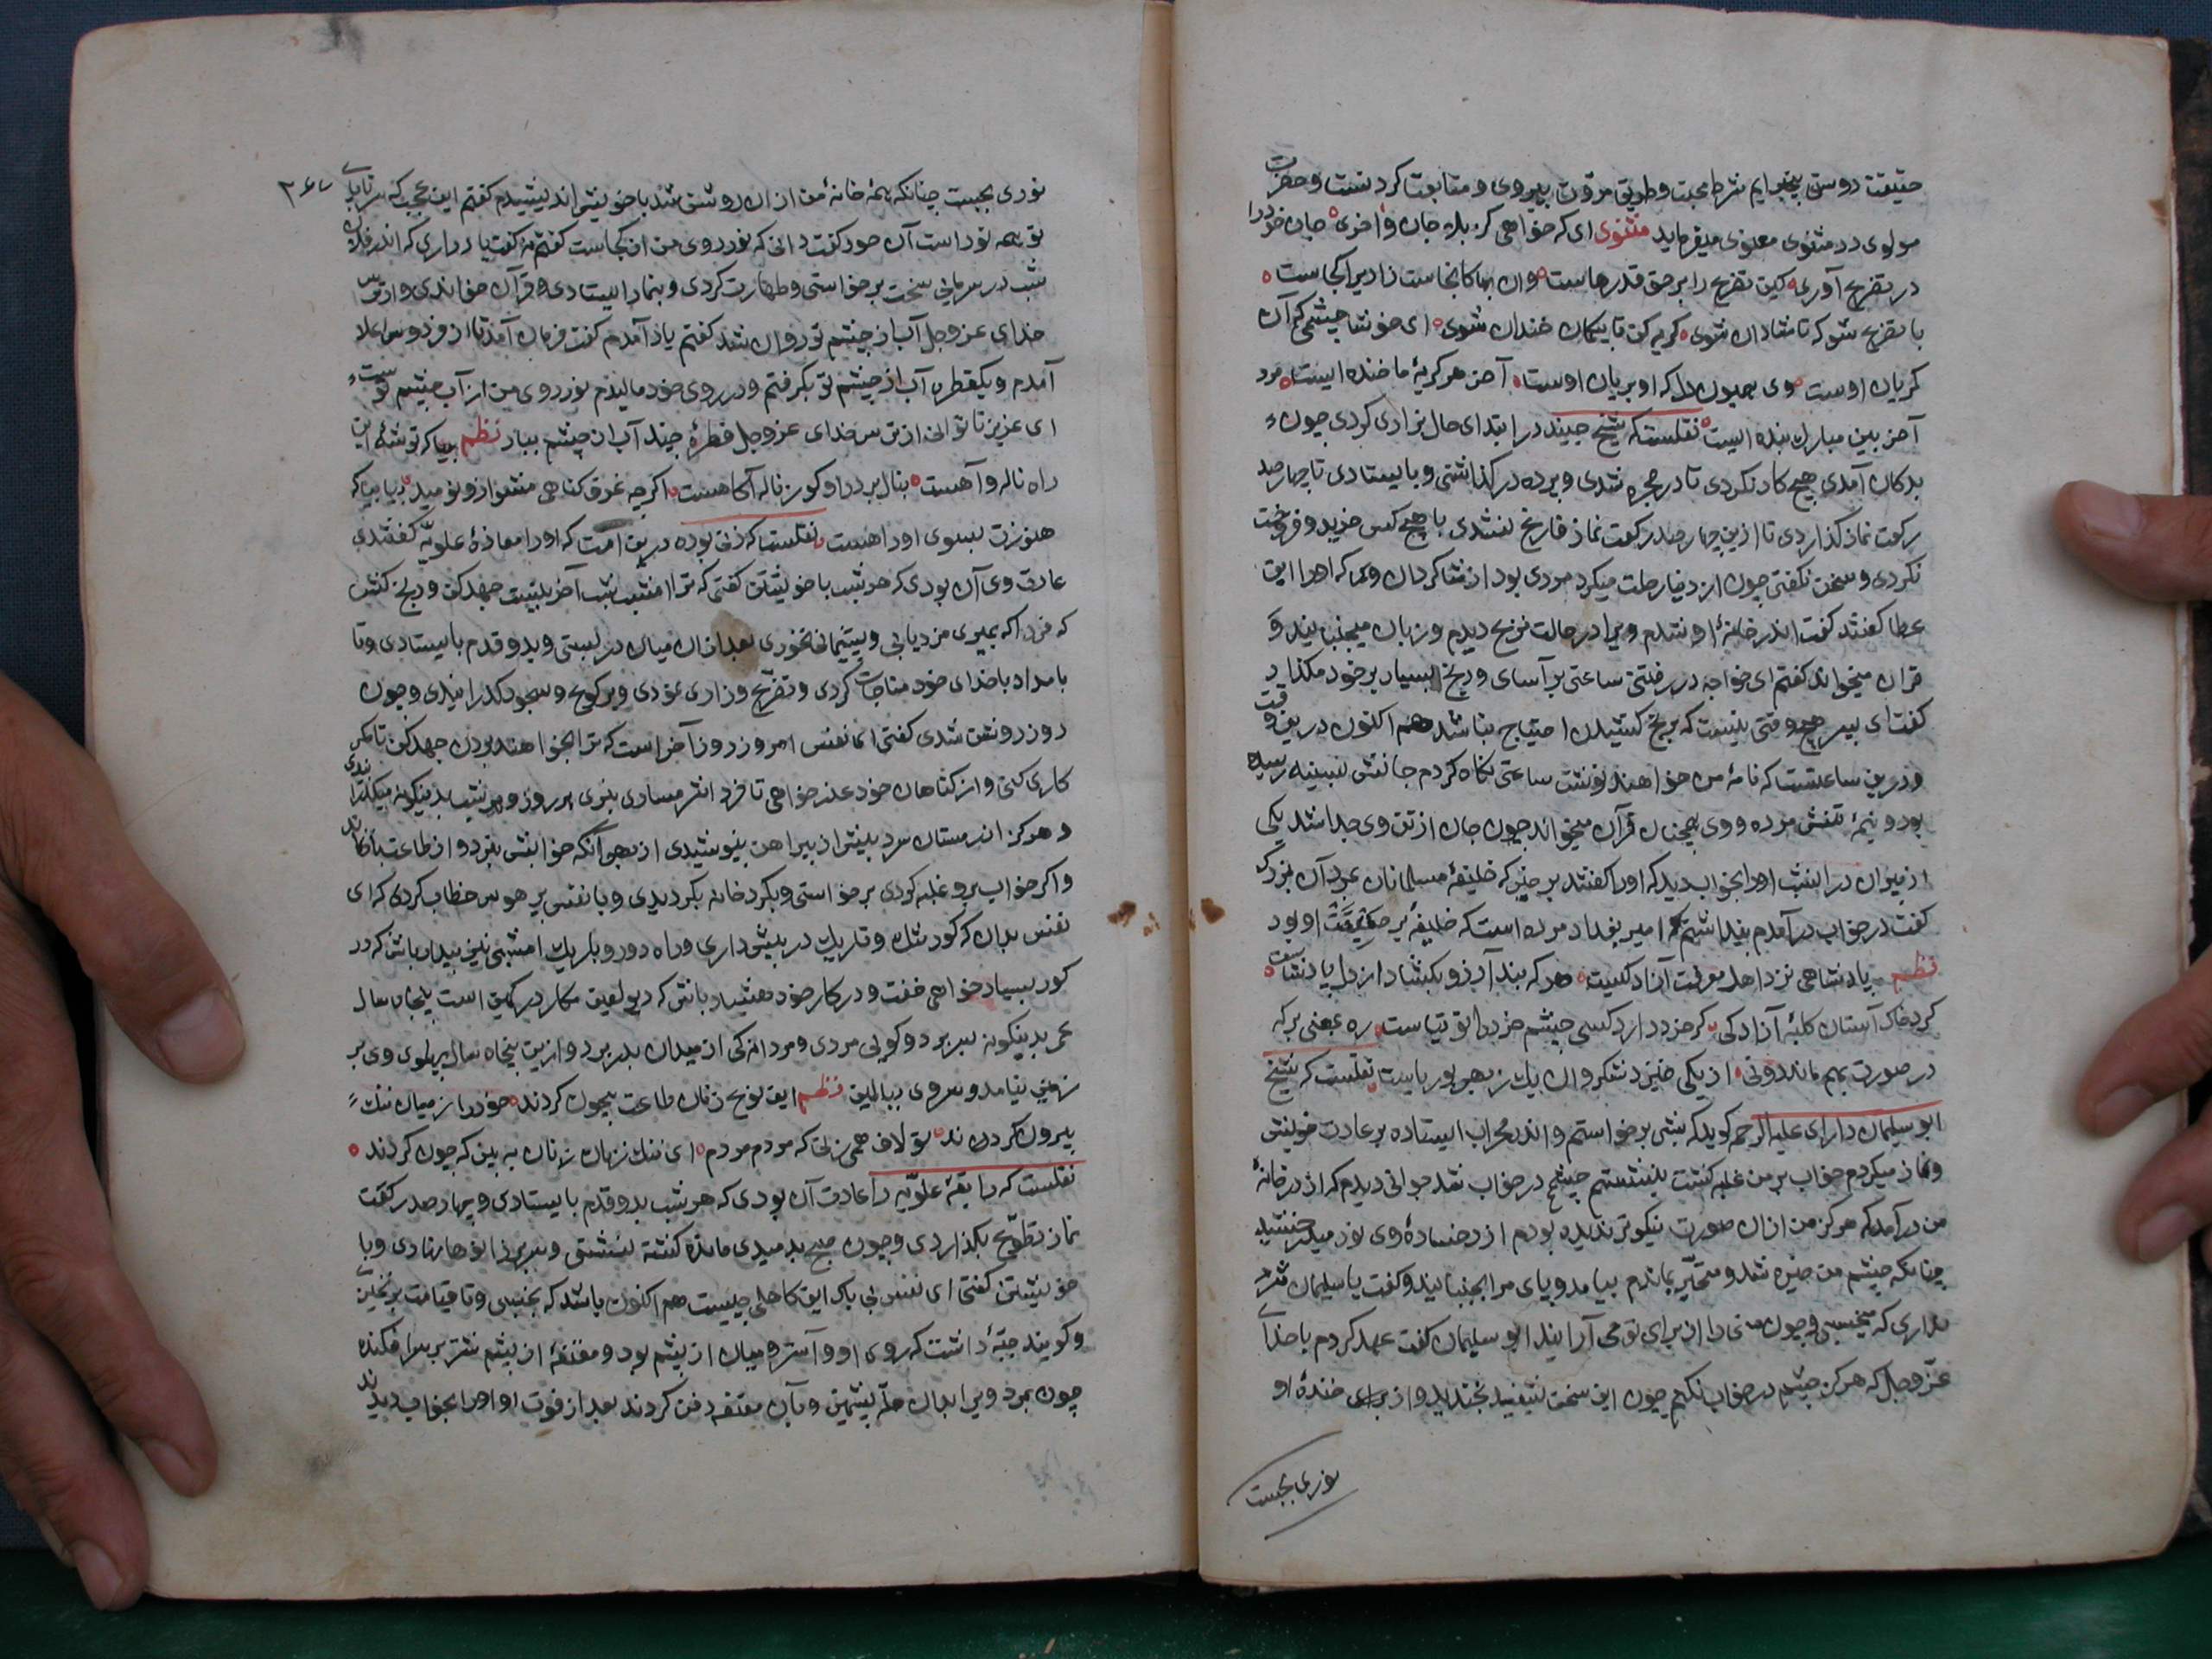 حقیقت دوستی پیغمبرایم شرط محبت و طریق مروت پیروی و متابعت کردنست و حضرت
مولوی در مثنوی معنوی میفرماید مثنوی ای که خواهی کز بلا جان واخری جان خود را
در تضرع آوری کین تضرع را بر حق قدرهاست وان بها کانجاست زاریرا کجاست
با تضرع شو که تا شادان شوی گریه کن تا بیکمان خندان شوی ای خوشا چشمی که آن
گریان اوست وی همیون دل که او بریان اوست آخر هر گریهٔ ما خنده ایست مرد
آخر بین مبارک بنده ایست نقلست که شیخ جنید در ابتدای حال بزازی کردی چون
بدکان آمدی هیچ کار نکردی تا در حجره شدی و پرده در کذاشتی و بایستادی تا چهار صد
رکعت نماز کذاردی تا ازین چهار صد رکعت نماز فارغ نشدی با هیچ کس خرید و فروخت
نکردی و سخن نکفتی چون از دنیا رحلت میکرد مردی بود از شاکردان وی که او را ابن
عطا کفتند کفت اندر خانهٔ او شدم ویرا در حالت نزع دیدم و زبان میجنبانید و
قران میخواند کفتم ای خواجه در رفتنی ساعتی بر آسای و رنج بسیار بر خود مکذار
کفت ای پسر هیچ وقتی نیست که برنج کشیدن احتیاج نباشد هم اکنون درین وقت
و درین ساعتست که نامهٔ من خواهند نوشت ساعتی نکاه کردم جانش بسینه رسیده
بود و نیمهٔ تنش مرده و وی همچنان قرآن میخواند چون جان از تن وی جدا شد یکی
از پیران در انشب او را بخواب دید که او را کفتند برخیز که خلیفهٔ مسلمانان بمرد آن بزرک
کفت در خواب در آمدم پنداشتم که امیر بغداد مرده است که خلیفه بر حقیقت او بود
نظم پادشاهی نزد اهل معرفت آزادکیست هر که بند آرزو بکشاد از دل پادشاست
کرد خاک آستان کلبهٔ آزادکی کر خرد دارد کسی چشم خرد را توتیاست ره بمعنی بر که
در صورت بهم مانند دونی از یکی خیزد شکر وان یک ز بهر بوریاست نقلست که شیخ
ابو سلیمان دارای علیه الرحمه کوید که شبی برخواستم و اندر محراب ایستاده بر عادت خویش
و نماز میکردم خواب بر من غلبه کشت بنشستم چشمم در خواب شد جوانی دیدم که از در خانهٔ
من در آمد که هرکز من ازان صورت نیکوتر ندیده بودم از رخسارهٔ وی نور میدرخشید
چنانکه چشم من خیره شد و متحیر بماندم بیامد و پای مرا بجنبانید و کفت یا سلیمان شرم
نداری که میخسبی و چون منی را از برای تو می آرایند ابو سلیمان کفت عهد کردم با خدای
عز و جل که هرکز چشم در خواب نکنم چون این سخن شنید بخندید و از برای خندهٔ او
نوری بجست
نوری بجست چنانکه همهٔ خانهٔ من ازان روشن شد با خویش اندیشیدم کفتم این عجب که سر تا پای ۲۶۷
تو همه نور است آن حور کفت دانی که نور روی من از کجاست کفتم نه کفت یاد داری که اندر فلان
شب در سرمای سخت برخواستی و طهارت کردی و بنماز ایستادی و قرآن خواندی و از ترس
خدای عز و جل آب از چشم تو روان شد کفتم یاد آمدم کفت فرمان آمد تا از فردوس اعلا
آمدم و یکقطره آب از چشم تو بکرفتم و در روی خود مالیدم نور روی من از آب چشم تو ست
ای عزیز تا توانی از ترس خدای عز و جل قطرهٔ چند آب از چشم ببار نظم بیا که توشهٔ این
راه ناله و آهست بنال بر در او کو ز ناله آکاهست اکرچه غرق کناهی مشو ازو نومید بیا بیا که
هنوزت بسوی او راهست نقلست که زنی بوده درین امت که او را معاذهٔ علویه کفتندی
عادت وی آن بودی که هر شب با خویشتن کفتی که ترا امشب شب آخرینیست جهد کن و رنج کش
که فردا که بمیری مزد یابی و پشیمانی نخوری بعد ازان میان در بستی و بدو قدم بایستادی و تا
بامداد با خدای خود مناجات کردی و تضرع و زاری نمودی و برکوع و سجود کذرانیدی و چون
روز روشن شدی کفتی ای نفس امروز روز آخر است که ترا بخواهند بودن جهد کن تا مکر
کاری کنی و از کناهان خود عذر خواهی تا فردا شرمساری نبری هر روز و هر شب بدینکونه میکذرانیدی
و هرکز در زمستان سرد بیش از پیراهن نپوشیدی از بهر آنکه خوابش نبرد و از طاعت باز نماند
و اکر خواب برو غلبه کردی برخواستی و بکرد خانه بکردیدی و با نفس پر هوس خطاب کردی که ای
نفس بدان که کور تنک و تاریک در پیش داری و راه دور و باریک امشبی نیز بیدار باش که در
کور بسیار خواهی خفت و در کار خود هشیار باش که دیو لعین مکار در کمین است پنجاه سال
عمر بدینکونه بسر برد و کویی مردی و مردانکی از میدان بدر برد و ازین پنجاه سال پهلوی وی بر
زمین نیامد و سر وی ببالین نظم این نوع زنان طاعت بیچون کردند خود را ز میان ننک
بیرون کردند تو لاف همی زنی که مردم مردم ای ننک زنان زنان به بین که چون کردند
نقلست که رابعهٔ علویه را عادت آن بودی که هر شب بدو قدم بایستادی و چهار صد رکعت
نماز تطوع بکذاردی و چون صبح بدمیدی مانده کشته بنشستی و سر بر زانو ها نهادی و با
خویشتن کفتی ای نفس بی باک این کاهلی چیست هم اکنون باشد که بخسبی و تا قیامت برنخیزی
و کویند جبهٔ داشت که روی او و آستر و میان از پشم بود و مقنعهٔ از پشم شتر بر سر افکنده
چون بمرد ویرا بدان حلهٔ پشمین و بآن مقنعه دفن کردند بعد از فوت او او را بخواب دیدند